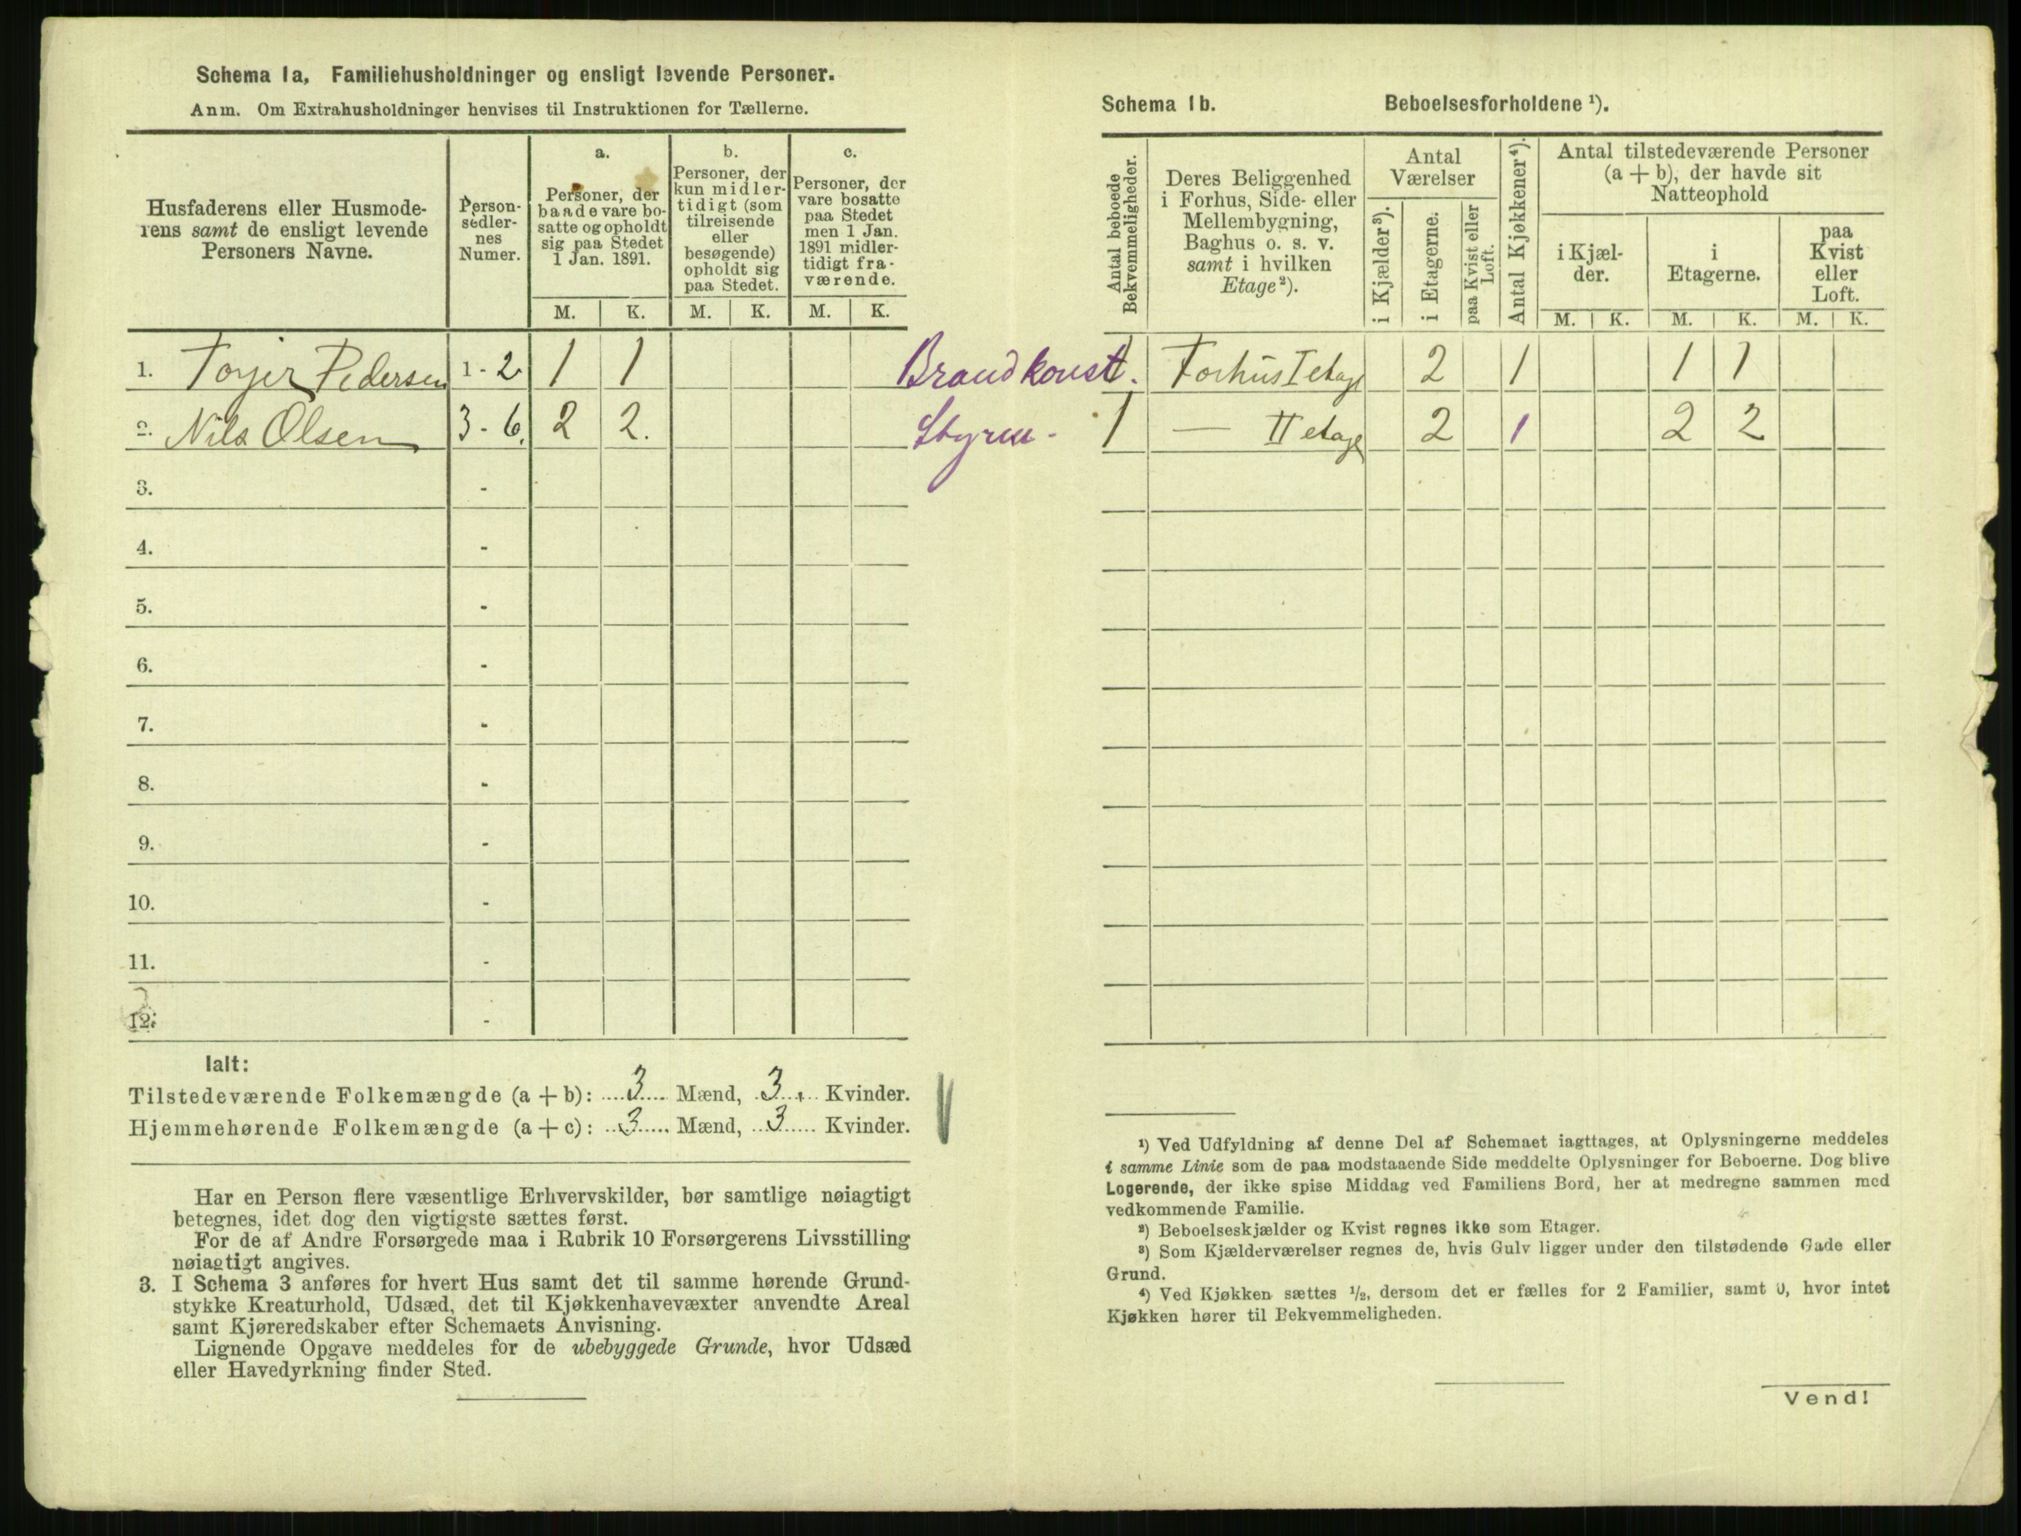 Schema 1a, Familiehusholdninger og ensligt levende Personer.
Anm. Om Extrahusholdninger henvises til Instruktionen for Tællerne.
Husfaderens eller Husmoderens samt de ensligt levende Personers Navne.
Personsedlernes Numer.
a.
Personer, der baade vare bosatte og opholdt sig paa Stedet 1 Jan. 1891.
b.
Personer, der kun midlertidigt (som tilreisende eller besøgende) opholdt sig paa Stedet.
c.
Personer, der vare bosatte paa Stedet men 1 Jan. 1891 midlertidigt fraværende.
M. K. M. K. M. K.
1. Torjer Pedersen 1 - 2 1 1
2. Nils Olsen 3 - 6. 2 2.
3. -
4. -
5. -
6. -
7. -
8. -
9. -
10. -
11. -
12. -
Ialt:
Tilstedeværende Folkemængde (a + b): 3 Mænd, 3 Kvinder.
Hjemmehørende Folkemængde (a + c): 3 Mænd, 3 Kvinder.
Har en Person flere væsentlige Erhvervskilder, bør samtlige nøiagtigt
betegnes, idet dog den vigtigste sættes først.
For de af Andre Forsørgede maa i Rubrik 10 Forsørgerens Livsstilling
nøiagtigt angives.
3. I Schema 3 anføres for hvert Hus samt det til samme hørende Grund-
stykke Kreaturhold, Udsæd, det til Kjøkkenhavevæxter anvendte Areal
samt Kjøreredskaber efter Schemaets Anvisning.
Lignende Opgave meddeles for de ubebyggede Grunde, hvor Udsæd
eller Havedyrkning finder Sted.
Schema 1b. Beboelsesforholdene ¹).
Antal beboede Bekvemmeligheder.
Deres Beliggenhed i Forhus, Side- eller Mellembygning, Baghus o. s. v. samt i hvilken Etage²).
Antal Værelser
i Kjælder³).
i Etagerne.
paa Kvist eller Loft.
Antal Kjøkkener⁴).
Antal tilstedeværende Personer (a + b), der havde sit Natteophold
i Kjælder.
i Etagerne.
paa Kvist eller Loft.
M. K. M. K. M. K.
Brandkonst. Forhus I etage 2 1 1 1
Styrer - 1 — II etage 2 1 2 2
¹) Ved Udfyldning af denne Del af Schemaet iagttages, at Oplysningerne meddeles
i samme Linie som de paa modstaaende Side meddelte Oplysninger for Beboerne. Dog blive
Logerende, der ikke spise Middag ved Familiens Bord, her at medregne sammen med
vedkommende Familie.
²) Beboelseskjælder og Kvist regnes ikke som Etager.
³) Som Kjælderværelser regnes de, hvis Gulv ligger under den tilstødende Gade eller
Grund.
⁴) Ved Kjøkken sættes ½, dersom det er fælles for 2 Familier, samt 0, hvor intet
Kjøkken hører til Bekvemmeligheden.
Vend!